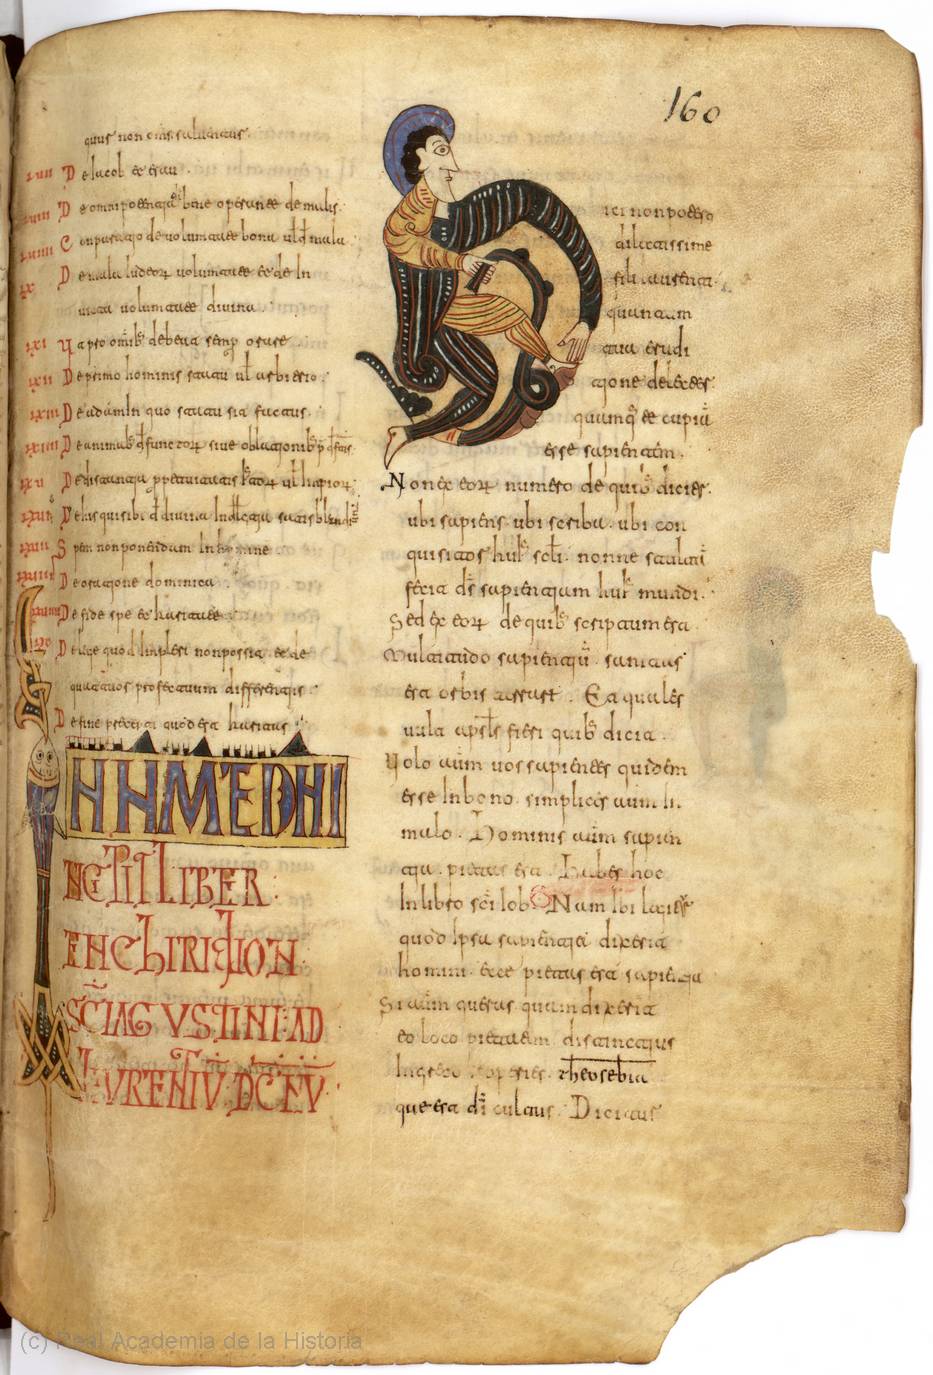 160
quus non
xviii De Iacob et esau
De omnipotentia bene operantis de malis
Conparatio de voluntate bona vel mala
xx De mala Iudeorum voluntate et de In
victa voluntate divina
xxi Ut pro omnibus debeat semper orare
xxii De primo hominis statu vel arbitrio
xxiii De adam In quo statu sit factus
xxiiii De animabus defunctorum sive oblationibus pro defunctis
xxv De distantia perpetuitatis
xxvi De his quisibi de divina Indulgentia satis
xxvii Spem non ponendam In homine
De oratione dominica
De fide spe et karitate
De lege quod Impleri non possit et de
quattuor profectuum differentiis
De fine precepti quod est karitas
IN NME DNI
INCIPIT LIBER
ENCHIRIDION
SCI AGUSTINI AD
LAURENTIU DCNU
Dici non potest
dilectissime
fili laurenti
quantum
tua erudi
tione delecter
quumque te cupiam
esse sapientem
Non ex eorum numero de quibus dicitur
ubi sapiens ubi scriba ubi con
quisitor huius seculi nonne stultam
fecit deus sapientiam huius mundi
Sed ex eorum de quibus scriptum est
Multitudo sapientium sanitas
est orbis terrarum Et quales
vult apostolus fieri quibus dicit
Volo autem vos sapientes quidem
esse In bono simplices autem In
malo Hominis autem sapien
tia pietas est Habes hoc
In libro sancti Iob Nam Ibi legitur
quod Ipsa sapientia dixerit
homini ecce pietas est sapientia
Si autem queras quam dixerit
eo loco pietatem distinctius
In greco reperies theosebia
que est dei cultus Dicitur
(c) Real Academia de la Historia